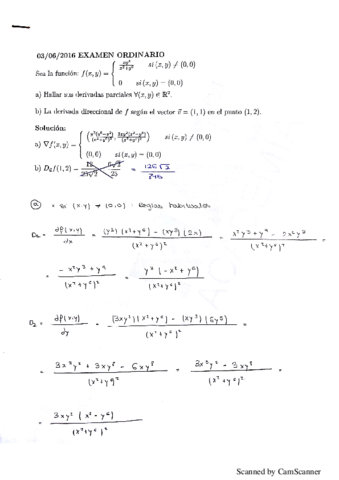 03/06/2016 EXAMEN ORDINARIO
Sea la función: f(x,y) = { xy³/(x²+y⁶) si (x,y) ≠ (0,0)
0 si (x,y) = (0,0)
a) Hallar sus derivadas parciales ∀(x,y) ∈ ℝ².
b) La derivada direccional de f según el vector v⃗ = (1,1) en el punto (1,2).
Solución:
a) ∇f(x,y) = { (y³(y⁶−x²)/(x²+y⁶)², 3xy²(x²−y⁶)/(x²+y⁶)²) si (x,y) ≠ (0,0)
(0,0) si (x,y) = (0,0)
b) f(1,2) =
a) • si (x,y) ≠ (0,0) :
D₁ = ∂f(x,y)/dx = (y³)(x²+y⁶) − (xy³)(2x) / (x²+y⁶)² = x²y³ + y⁹ − 2x²y³ / (x²+y⁶)² =
− x²y³ + y⁹ / (x²+y⁶)² = y³(−x² + y⁶) / (x²+y⁶)²
D₂ = ∂f(x,y)/dy = (3xy²)(x²+y⁶) − (xy³)(6y⁵) / (x²+y⁶)² =
= 3x³y² + 3xy⁸ − 6xy⁸ / (x²+y⁶)² = 3x³y² − 3xy⁸ / (x²+y⁶)² =
= 3xy²(x² − y⁶) / (x²+y⁶)²
Scanned by CamScanner